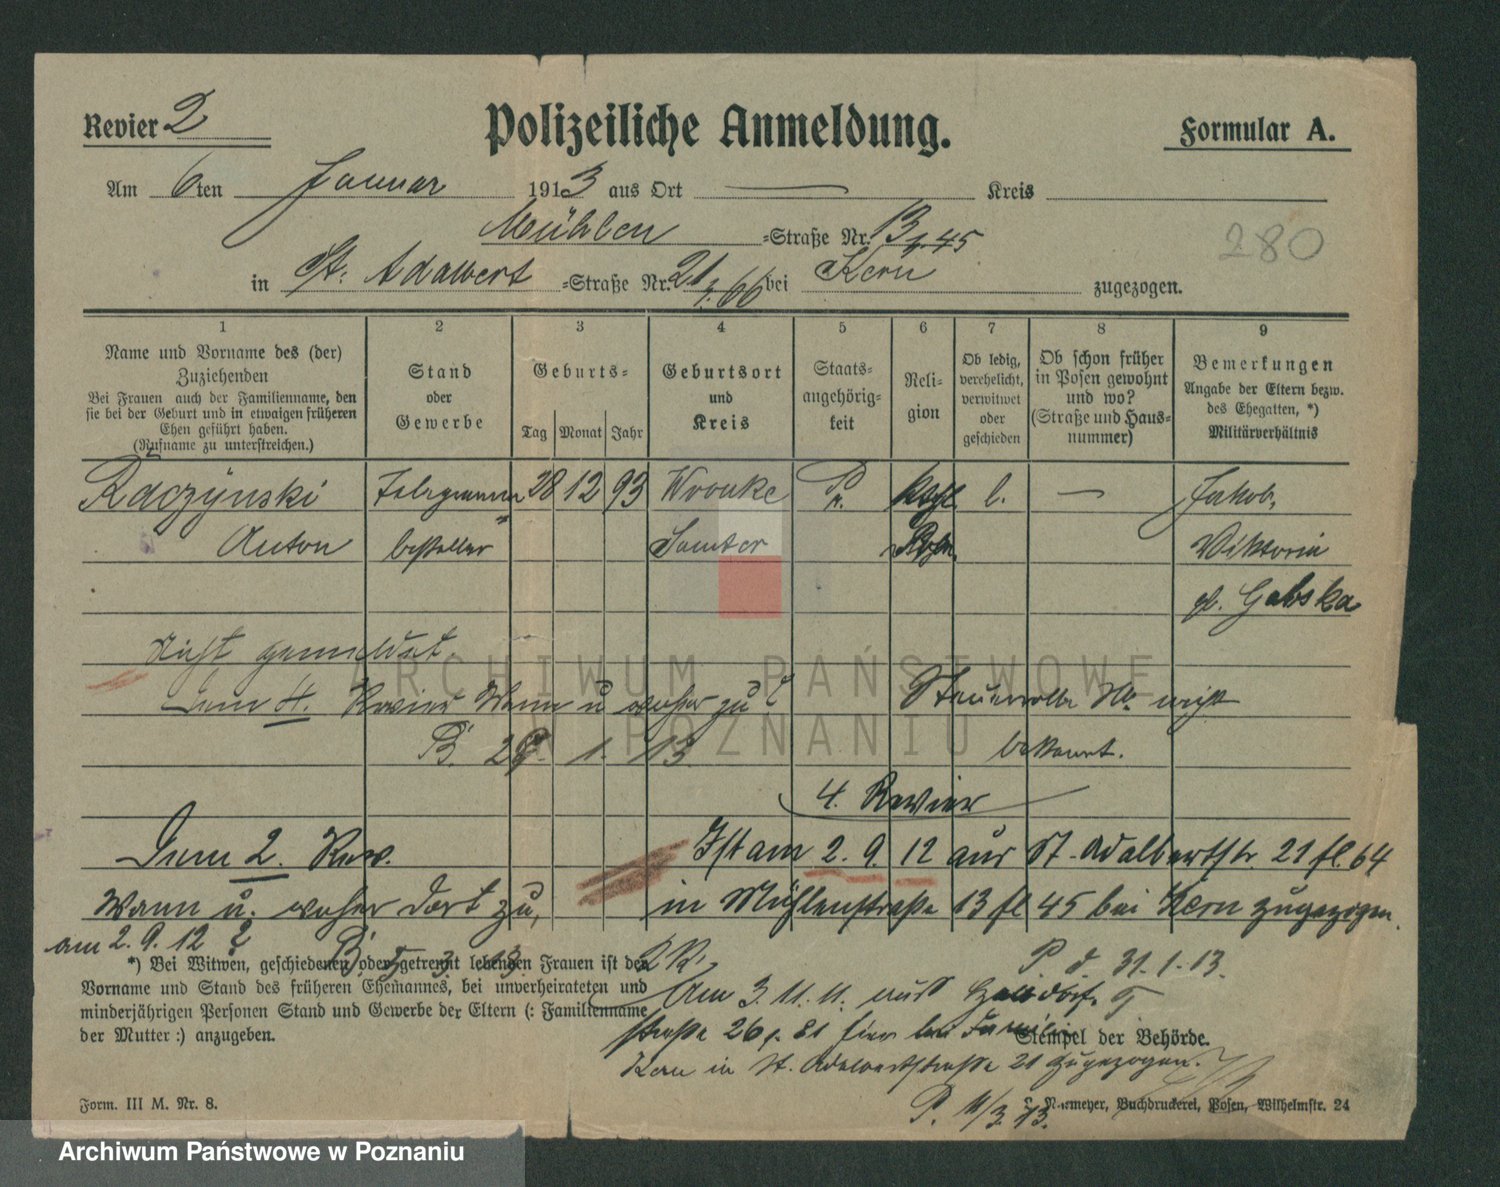 Revier 2
Polizeiliche Anmeldung.
Formular A.
Am 6ten Januar 1913 aus Ort — Kreis
Mühlen =Straße Nr. 13 f. 45
280
in St. Adalbert =Straße Nr. 21 f. 66 bei Kern zugezogen.
1 2 3 4 5 6 7 8 9
Name und Vorname des (der) Zuziehenden
Bei Frauen auch der Familienname, den sie bei der Geburt und in etwaigen früheren Ehen geführt haben.
(Rufname zu unterstreichen.)
Stand oder Gewerbe
Geburts=
Tag Monat Jahr
Geburtsort und Kreis
Staats=angehörig=keit
Reli=gion
Ob ledig, verehelicht, verwitwet oder geschieden
Ob schon früher in Posen gewohnt und wo? (Straße und Haus=nummer)
Bemerkungen
Angabe der Eltern bezw. des Ehegatten, *)
Militärverhältnis
Raczynski 28 12 93 Wronke Pr. kath. l. — Jakob,
Anton besteller Samter Viktoria
Gabska
Nicht gemeldet.
Zum 4. Revier Wann u woher zu? Steuerrolle No. nicht
B. 1. 13. bekannt.
4. Revier
Zum 2. Rev. Ist am 2. 9. 12 aus St. Adalbertstr. 21 fl. 64
Wann u. woher dort zu, in Mühlenstraße 13 fl 45 bei Kern zugezogen.
am 2. 9. 12 ?
B. 5. 3. 13.
P. d. 31. 1. 13.
*) Bei Witwen, geschiedenen oder getrennt lebenden Frauen ist der
Vorname und Stand des früheren Ehemannes, bei unverheirateten und
minderjährigen Personen Stand und Gewerbe der Eltern (: Familienname
der Mutter :) anzugeben.
2 R.
Am 3. 11. 11. aus
straße 26 f. 81 hier bei Familie
Stempel der Behörde.
Kern in St. Adalbertstraße 21 zugezogen.
P. 11/3. 13.
Form. III M. Nr. 8.
Buchdruckerei, Posen, Wilhelmstr. 24
ARCHIWUM PAŃSTWOWE
W POZNANIU
Archiwum Państwowe w Poznaniu